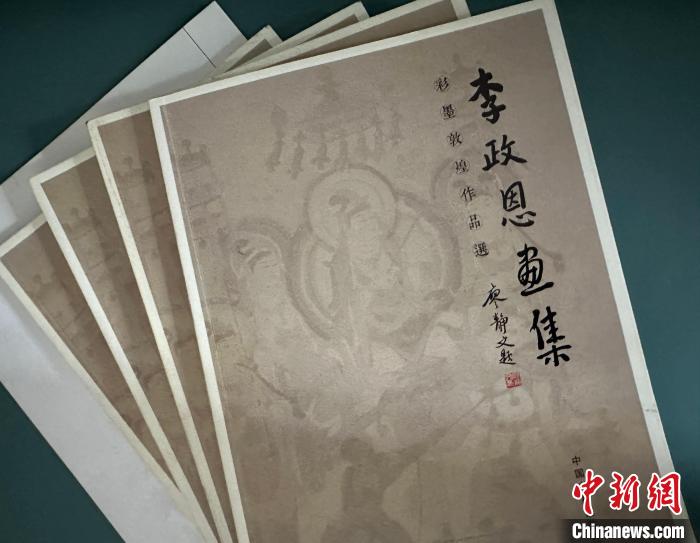 李政恩画集
彩墨敦煌作品選
廖静文题
中国
中新网
Chinanews.com